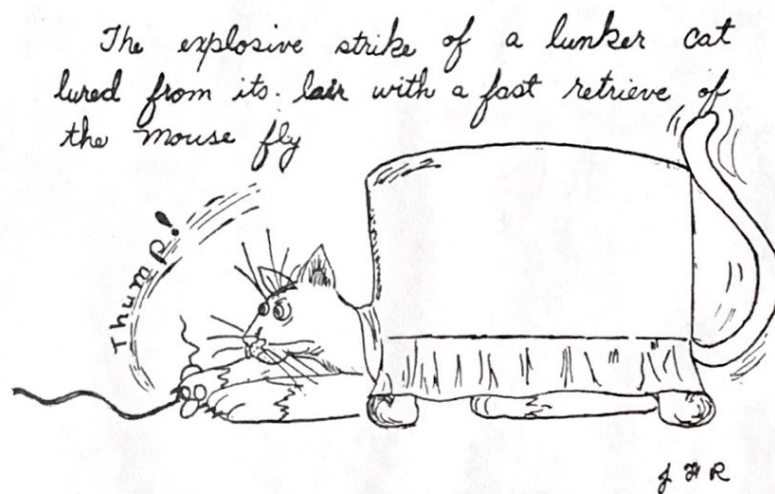 The explosive strike of a lunker cat
lured from its. lair with a fast retrieve of
the mouse fly
Thump!
J H R